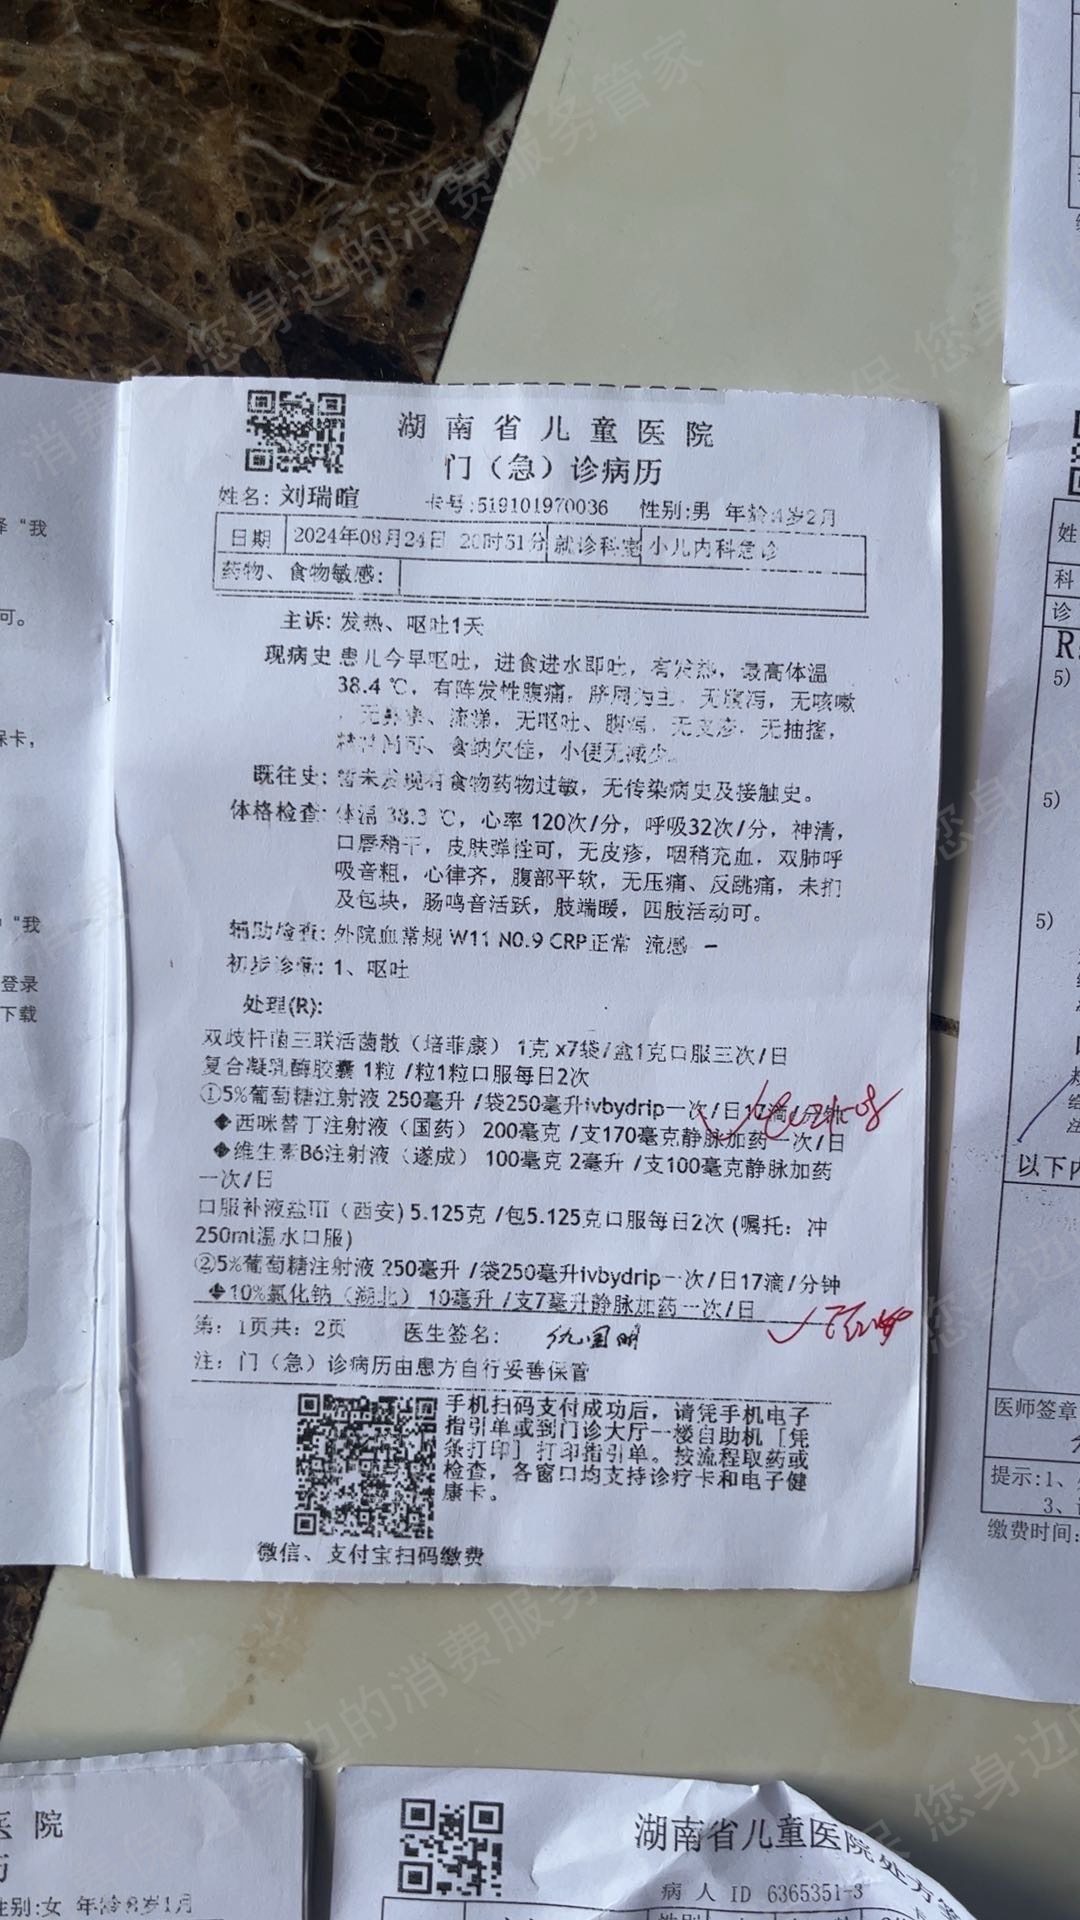 湖南省儿童医院
门（急）诊病历
姓名: 刘瑞暄 卡号:519101970036 性别:男 年龄:4岁2月
日期 2024年08月24日 20时51分 就诊科室 小儿内科急诊
药物、食物敏感:
主诉: 发热、呕吐1天
现病史 患儿今早呕吐，进食进水即吐，有发热，最高体温
38.4 ℃，有阵发性腹痛，脐周为主，无腹泻，无咳嗽
，无鼻塞、流涕，无呕吐、腹泻，无皮疹，无抽搐，
精神尚可、食纳欠佳，小便无减少。
既往史: 暂未发现有食物药物过敏，无传染病史及接触史。
体格检查: 体温 38.3 ℃，心率 120次/分，呼吸32次/分，神清，
口唇稍干，皮肤弹性可，无皮疹，咽稍充血，双肺呼
吸音粗，心律齐，腹部平软，无压痛、反跳痛，未扪
及包块，肠鸣音活跃，肢端暖，四肢活动可。
辅助检查: 外院血常规 W11 N0.9 CRP正常 流感 －
初步诊断: 1、呕吐
处理(R):
双歧杆菌三联活菌散（培菲康） 1克 x7袋/盒1克口服三次/日
复合凝乳酶胶囊 1粒 /粒1粒口服每日2次
①5%葡萄糖注射液 250毫升 /袋250毫升ivbydrip一次/日17滴/分钟
◆西咪替丁注射液（国药） 200毫克 /支170毫克静脉加药一次/日
◆维生素B6注射液（遂成） 100毫克 2毫升 /支100毫克静脉加药
一次/日
口服补液盐III（西安) 5.125克 /包5.125克口服每日2次 (嘱托: 冲
250ml温水口服)
②5%葡萄糖注射液 250毫升 /袋250毫升ivbydrip一次/日17滴/分钟
◆10%氯化钠（湖北） 10毫升 /支7毫升静脉加药一次/日
第: 1页共: 2页 医生签名: 仇国明
注: 门（急）诊病历由患方自行妥善保管
手机扫码支付成功后，请凭手机电子
指引单或到门诊大厅一楼自助机［凭
条打印］打印指引单。按流程取药或
检查，各窗口均支持诊疗卡和电子健
康卡。
微信、支付宝扫码缴费
"我
可。
保卡，
"我
登录
下载
姓
科
诊
5)
5)
5)
以下内
医师签章
提示:1、
3、
缴费时间:
医院
性别:女 年龄8岁1月
湖南省儿童医院处方笺
病人 ID 6365351-3
您身边的消费服务管家